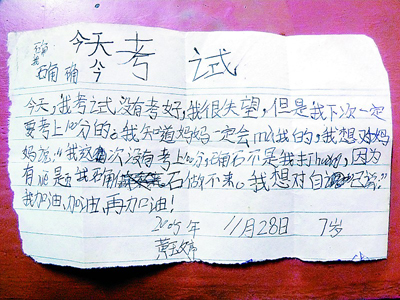 今天考试
确 我 石角 确 今
今天,我考式,没有考好,我很失望,但是我下次一定
要考上100分的。我知道妈妈一定会md我的,我想对妈
妈说:"我 次没有考上100分,确石不是我 ,因为
有 是 我 石做不来。我想对自己说:"
我加油,加油,再加油!
2005年 11月28日 7岁